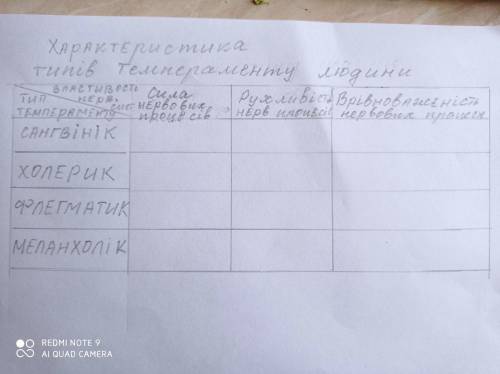 Характеристика
типів темпераменту людини
властивость
нерв.
сис.
тип
темпераменту
Сила
нервових
процесів
Рухливість
нерв
Врівноваженість
нервових
САНГВІНІК
ХОЛЕРИК
ФЛЕГМАТИК
МЕЛАНХОЛІК
REDMI NOTE 9
AI QUAD CAMERA